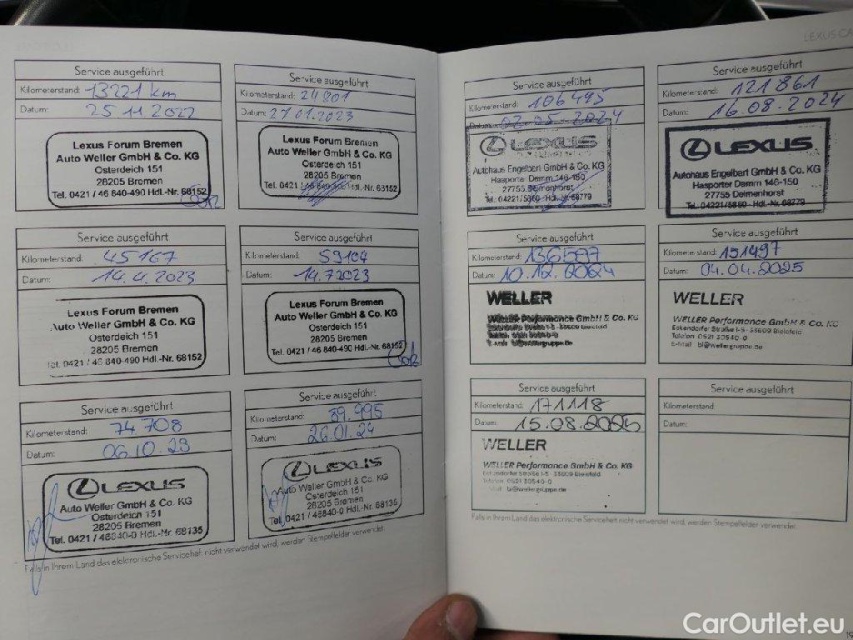 LEXUS CA
Service ausgeführt
Kilometerstand: 13221 km
Datum: 25 11 2022
Lexus Forum Bremen
Auto Weller GmbH & Co. KG
Osterdeich 151
28205 Bremen
Tel. 0421 / 46 840-490 Hdl.-Nr. 68152
Service ausgeführt
Kilometerstand: 24801
Datum: 27.01.2023
Lexus Forum Bremen
Auto Weller GmbH & Co. KG
Osterdeich 151
28205 Bremen
Tel. 0421 / 46 840-490 Hdl.-Nr. 68152
Service ausgeführt
Kilometerstand: 45167
Datum: 14.4.2023
Lexus Forum Bremen
Auto Weller GmbH & Co. KG
Osterdeich 151
28205 Bremen
Tel. 0421 / 46 840-490 Hdl.-Nr. 68152
Service ausgeführt
Kilometerstand: 59104
Datum: 14.7.2023
Lexus Forum Bremen
Auto Weller GmbH & Co. KG
Osterdeich 151
28205 Bremen
Tel. 0421 / 46 840-490 Hdl.-Nr. 68152
Service ausgeführt
Kilometerstand: 74 708
Datum: 06.10.23
LEXUS
Auto Weller GmbH & Co. KG
Osterdeich 151
28205 Bremen
Tel. 0421 / 46840-0 Hdl.-Nr. 68135
Service ausgeführt
Kilometerstand: 89.995
Datum: 26.01.24
LEXUS
Auto Weller GmbH & Co. KG
Osterdeich 151
28205 Bremen
Tel. 0421 / 46840-0 Hdl.-Nr. 68135
Falls in Ihrem Land das elektronische Serviceheft nicht verwendet wird, werden Stempelfelder verwendet.
Service ausgeführt
Kilometerstand: 106495
Datum: 02.05.2024
LEXUS
Autohaus Engelbart GmbH & Co. KG
Hasporter Damm 146-150
27755 Delmenhorst
Tel. 04221/5860 - Hdl.-Nr. 68779
Service ausgeführt
Kilometerstand: 121861
Datum: 16.08.2024
LEXUS
Autohaus Engelbart GmbH & Co. KG
Hasporter Damm 146-150
27755 Delmenhorst
Tel. 04221/5860 - Hdl.-Nr. 68779
Service ausgeführt
Kilometerstand: 136587
Datum: 10.12.2024
WELLER
WELLER Performance GmbH & Co. KG
Service ausgeführt
Kilometerstand: 151497
Datum: 04.04.2025
WELLER
WELLER Performance GmbH & Co. KG
Eckendorfer Straße 1-5 · 33609 Bielefeld
Telefon 0521 30540-0
E-Mail bi@wellergruppe.de
Service ausgeführt
Kilometerstand: 171118
Datum: 15.08.2025
WELLER
WELLER Performance GmbH & Co. KG
Eckendorfer Straße 1-5 · 33609 Bielefeld
Telefon 0521 30540-0
E-Mail bi@wellergruppe.de
Service ausgeführt
Kilometerstand:
Datum:
Falls in Ihrem Land das elektronische Serviceheft nicht verwendet wird, werden Stempelfelder verwendet.
CarOutlet.eu